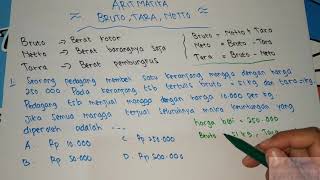 ARITMATIKA
BRUTO, TARA, NETTO
Bruto → Berat kotor
Netto → Berat barangnya saja
Tara → Berat pembungkus
Bruto = Netto + Tara
Netto = Bruto - Tara
Tara = Bruto - Netto
1. Seorang pedagang membeli satu keranjang mangga dengan harga
250.000. Pada keranjang tertulis bruto 51 kg dan tara
Pedagang tsb menjual mangga dengan harga 10.000 per kg.
Jika semua mangga terjual seluruhnya maka keuntungan yang
diperoleh adalah ...
A. Rp 10.000 C. Rp 250.000
B. Rp 50.000 D. Rp 500.000
harga beli = 250.000
Bruto = 51 kg, Tara